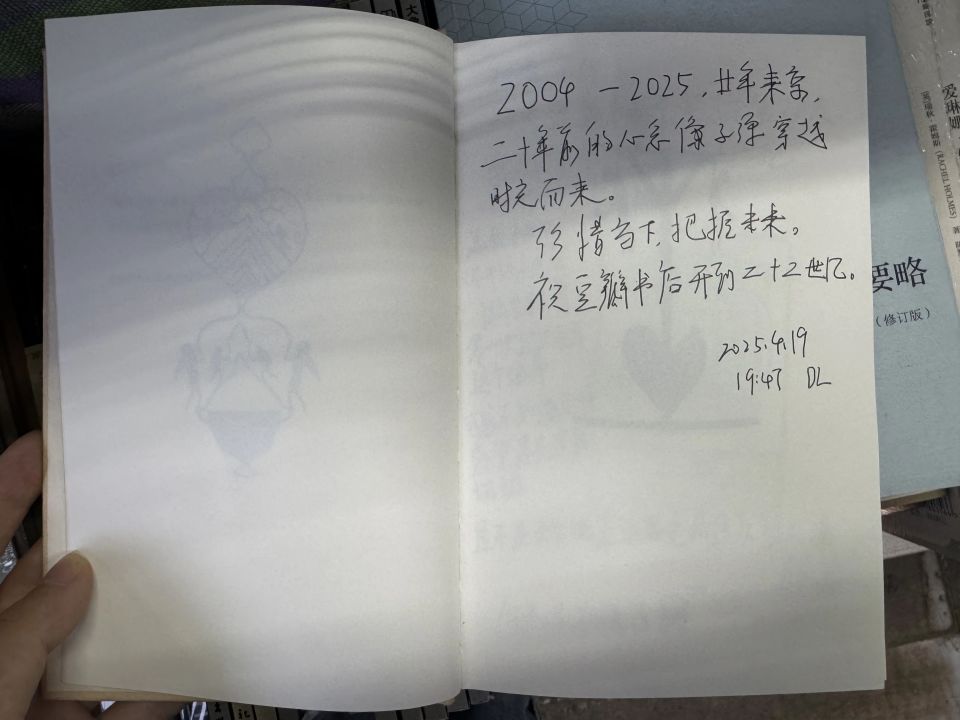 2004 — 2025，廿年来京，
二十年前的小念像子弹穿越
时空而来。
珍惜当下，把握未来。
祝豆瓣书店开到二十二世纪。
2025.4.19
19:47 DL
要略
（修订版）